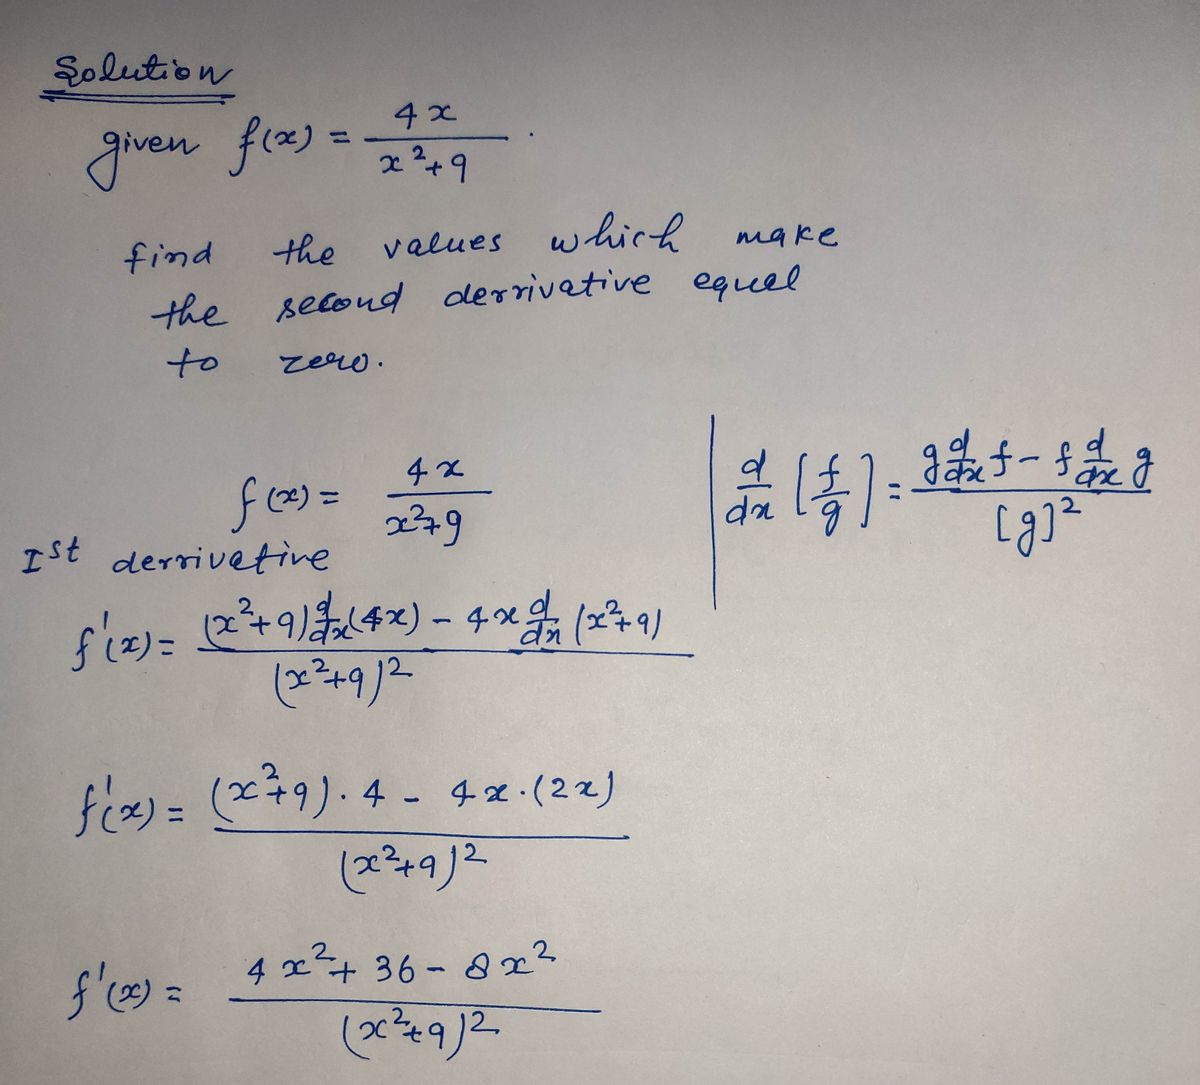 Solution
given f(x) = 4x / x²+9 .
find the values which make
the second derrivative equal
to zero.
f(x) = 4x / x²+9
d/dx [f/g] = g d/dx f - f d/dx g / [g]²
Ist derrivative
f'(x) = (x²+9) d/dx (4x) - 4x d/dx (x²+9) / (x²+9)²
f'(x) = (x²+9) . 4 - 4x . (2x) / (x²+9)²
f'(x) = 4x² + 36 - 8x² / (x²+9)²